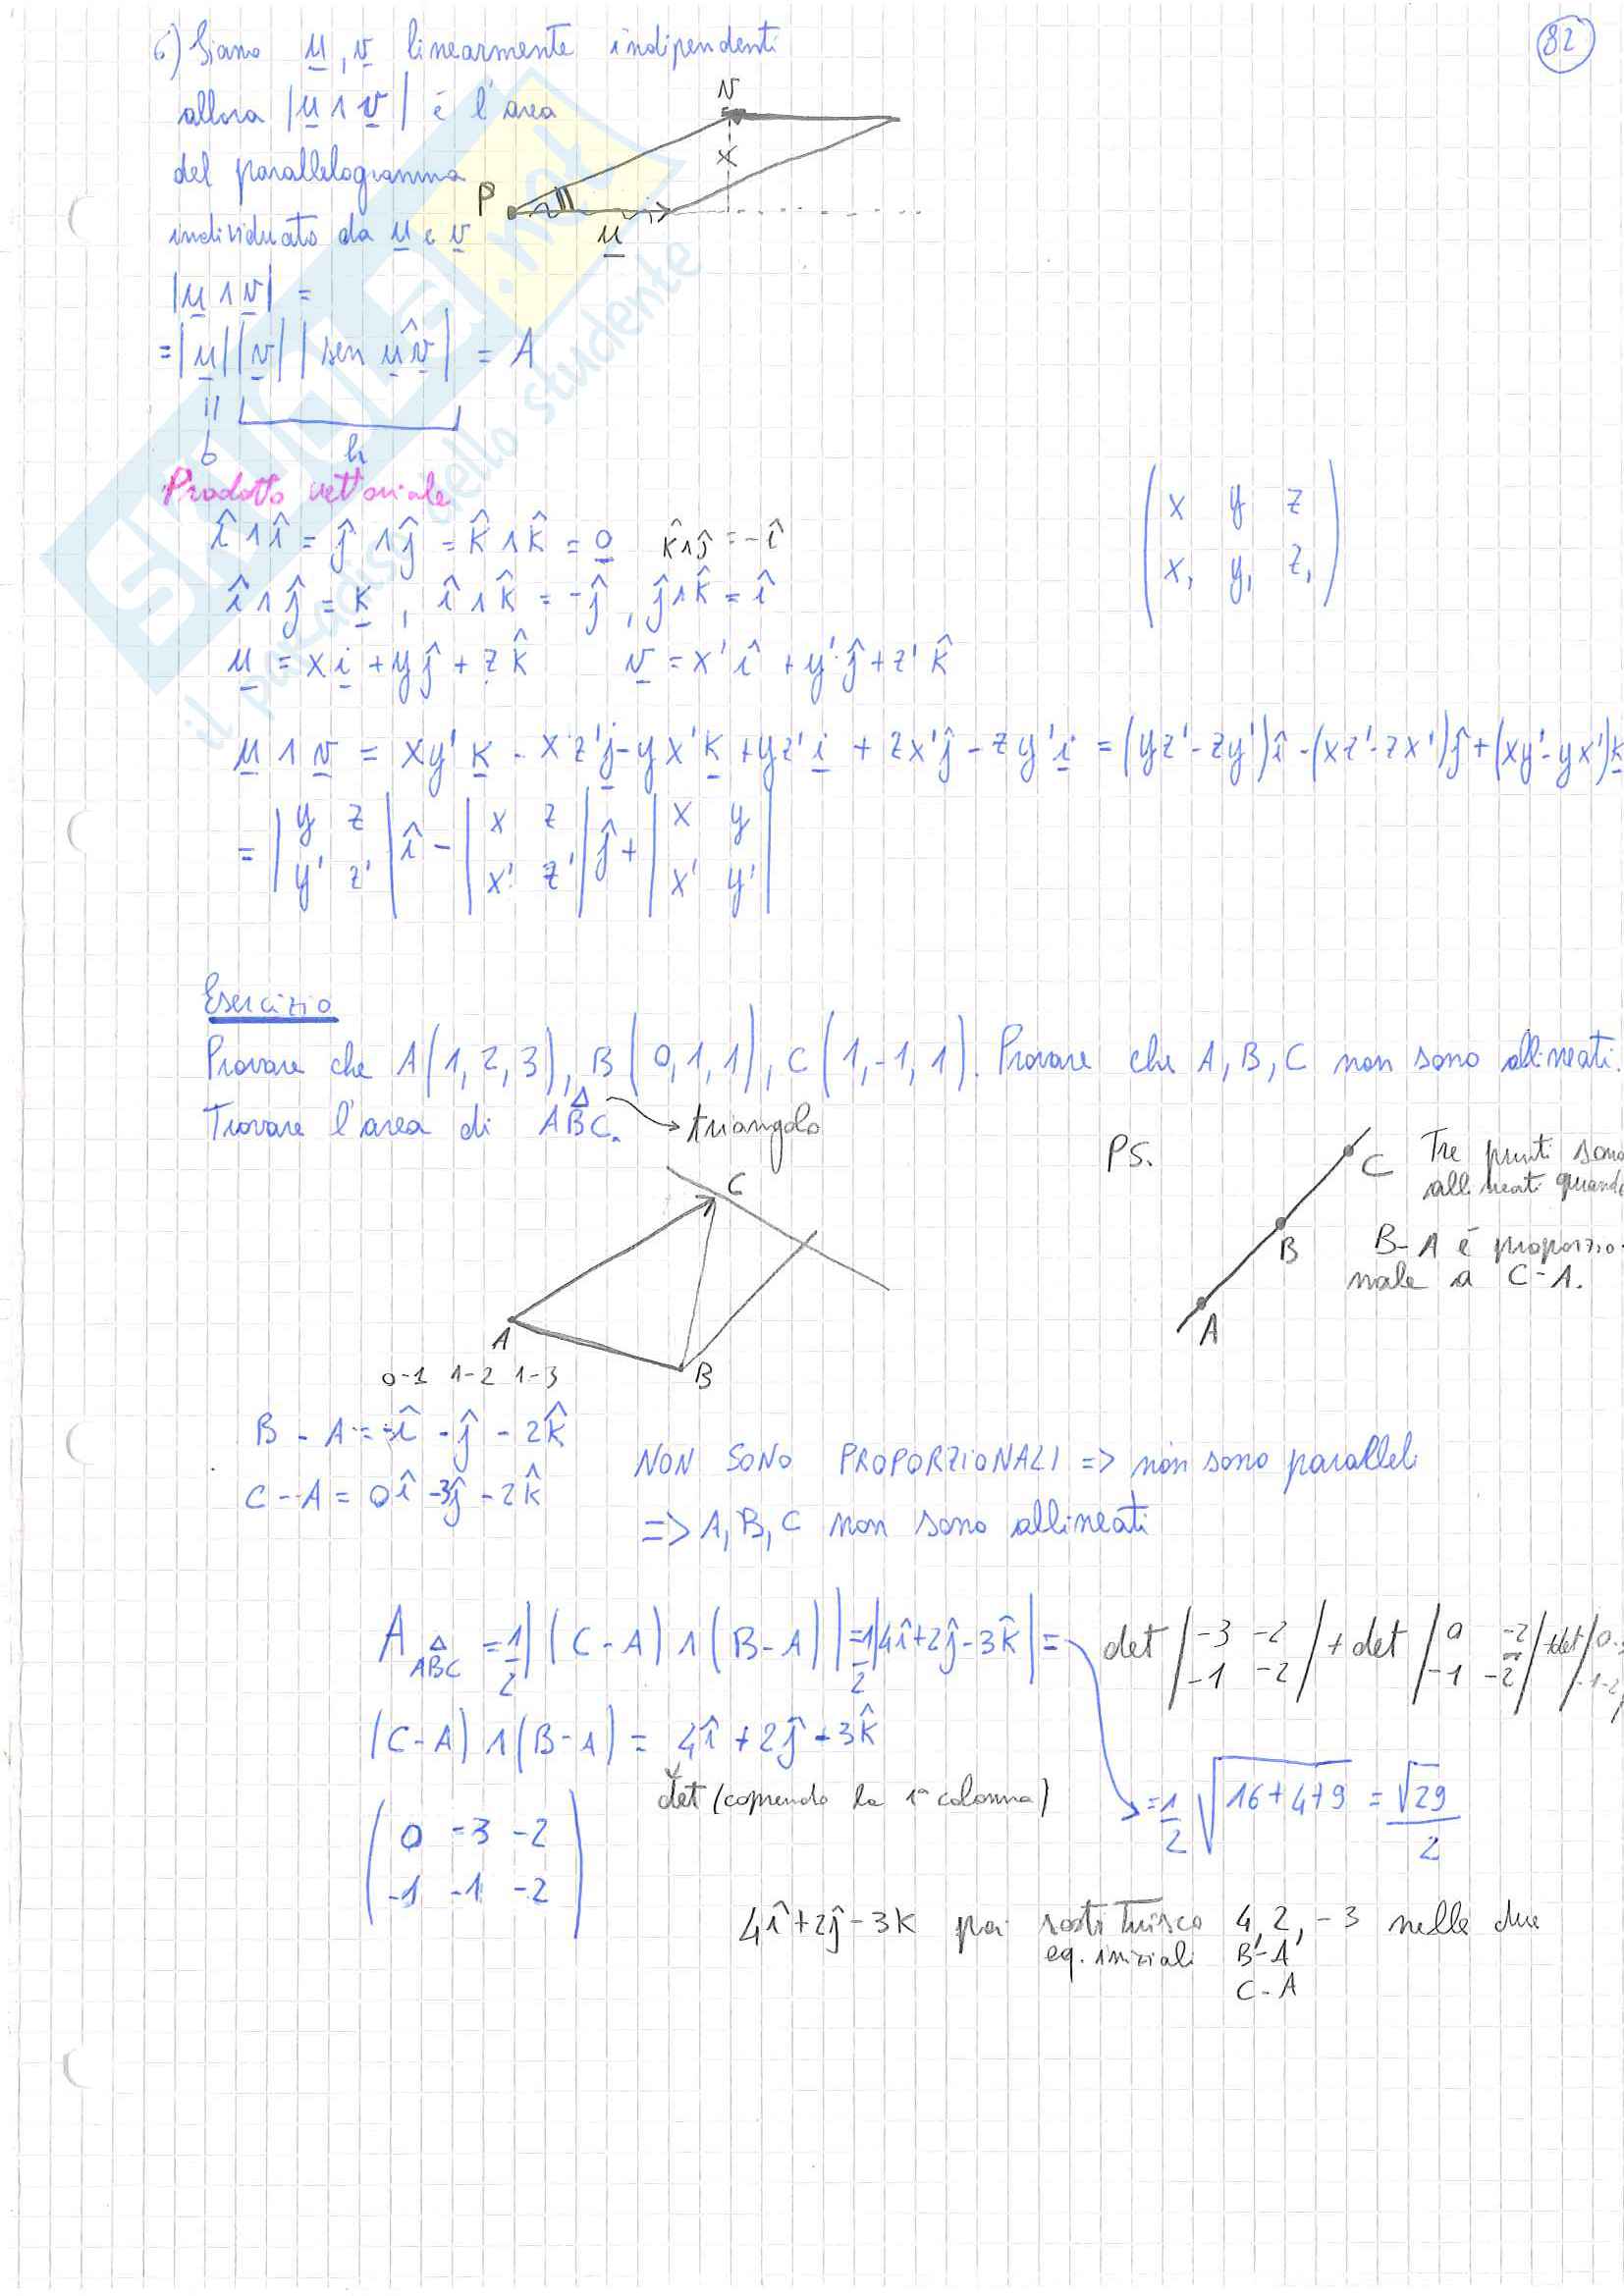 82
6) Siano u, v linearmente indipendenti
allora |u ∧ v| è l'area
del parallelogramma
individuato da u e v
P
u
|u ∧ v| =
= |u| |v| |sen u^v| = A
b h
Prodotto vettoriale
î ∧ î = ĵ ∧ ĵ = k̂ ∧ k̂ = 0 k̂ ∧ ĵ = -î
î ∧ ĵ = k , î ∧ k̂ = -ĵ , ĵ ∧ k̂ = î
( x y z
x, y, z, )
u = x i + y ĵ + z k̂ v = x' î + y' ĵ + z' k̂
u ∧ v = xy' k - xz' j - yx' k + yz' i + zx' ĵ - zy' i = (yz' - zy') î - (xz' - zx') ĵ + (xy' - yx') k
= | y z | î - | x z | ĵ + | x y |
| y' z' | | x' z' | | x' y' |
Esercizio
Provare che A(1, 2, 3), B(0, 1, 1), C(1, -1, 1). Provare che A, B, C non sono allineati.
Trovare l'area di ABC. → triangolo
C
A
B
PS.
C
B
A
Tre punti sono
allineati quando
B-A è proporzio-
nale a C-A.
0-1 1-2 1-3
B - A = -î - ĵ - 2k̂
C - A = 0î - 3ĵ - 2k̂
NON SONO PROPORZIONALI => non sono paralleli
=> A, B, C non sono allineati
A ABC = 1/2 |(C-A) ∧ (B-A)| = 1/2 |4î + 2ĵ - 3k̂| =
det | -3 -2 | + det | 0 -2 | + det
| -1 -2 | | -1 -2 |
(C-A) ∧ (B-A) = 4î + 2ĵ - 3k̂
det (coprendo la 1ª colonna)
= 1/2 √16+4+9 = √29/2
( 0 -3 -2
-1 -1 -2 )
4î + 2ĵ - 3k poi sostituisco 4, 2, -3 nelle due
eq. iniziali B-A
C-A